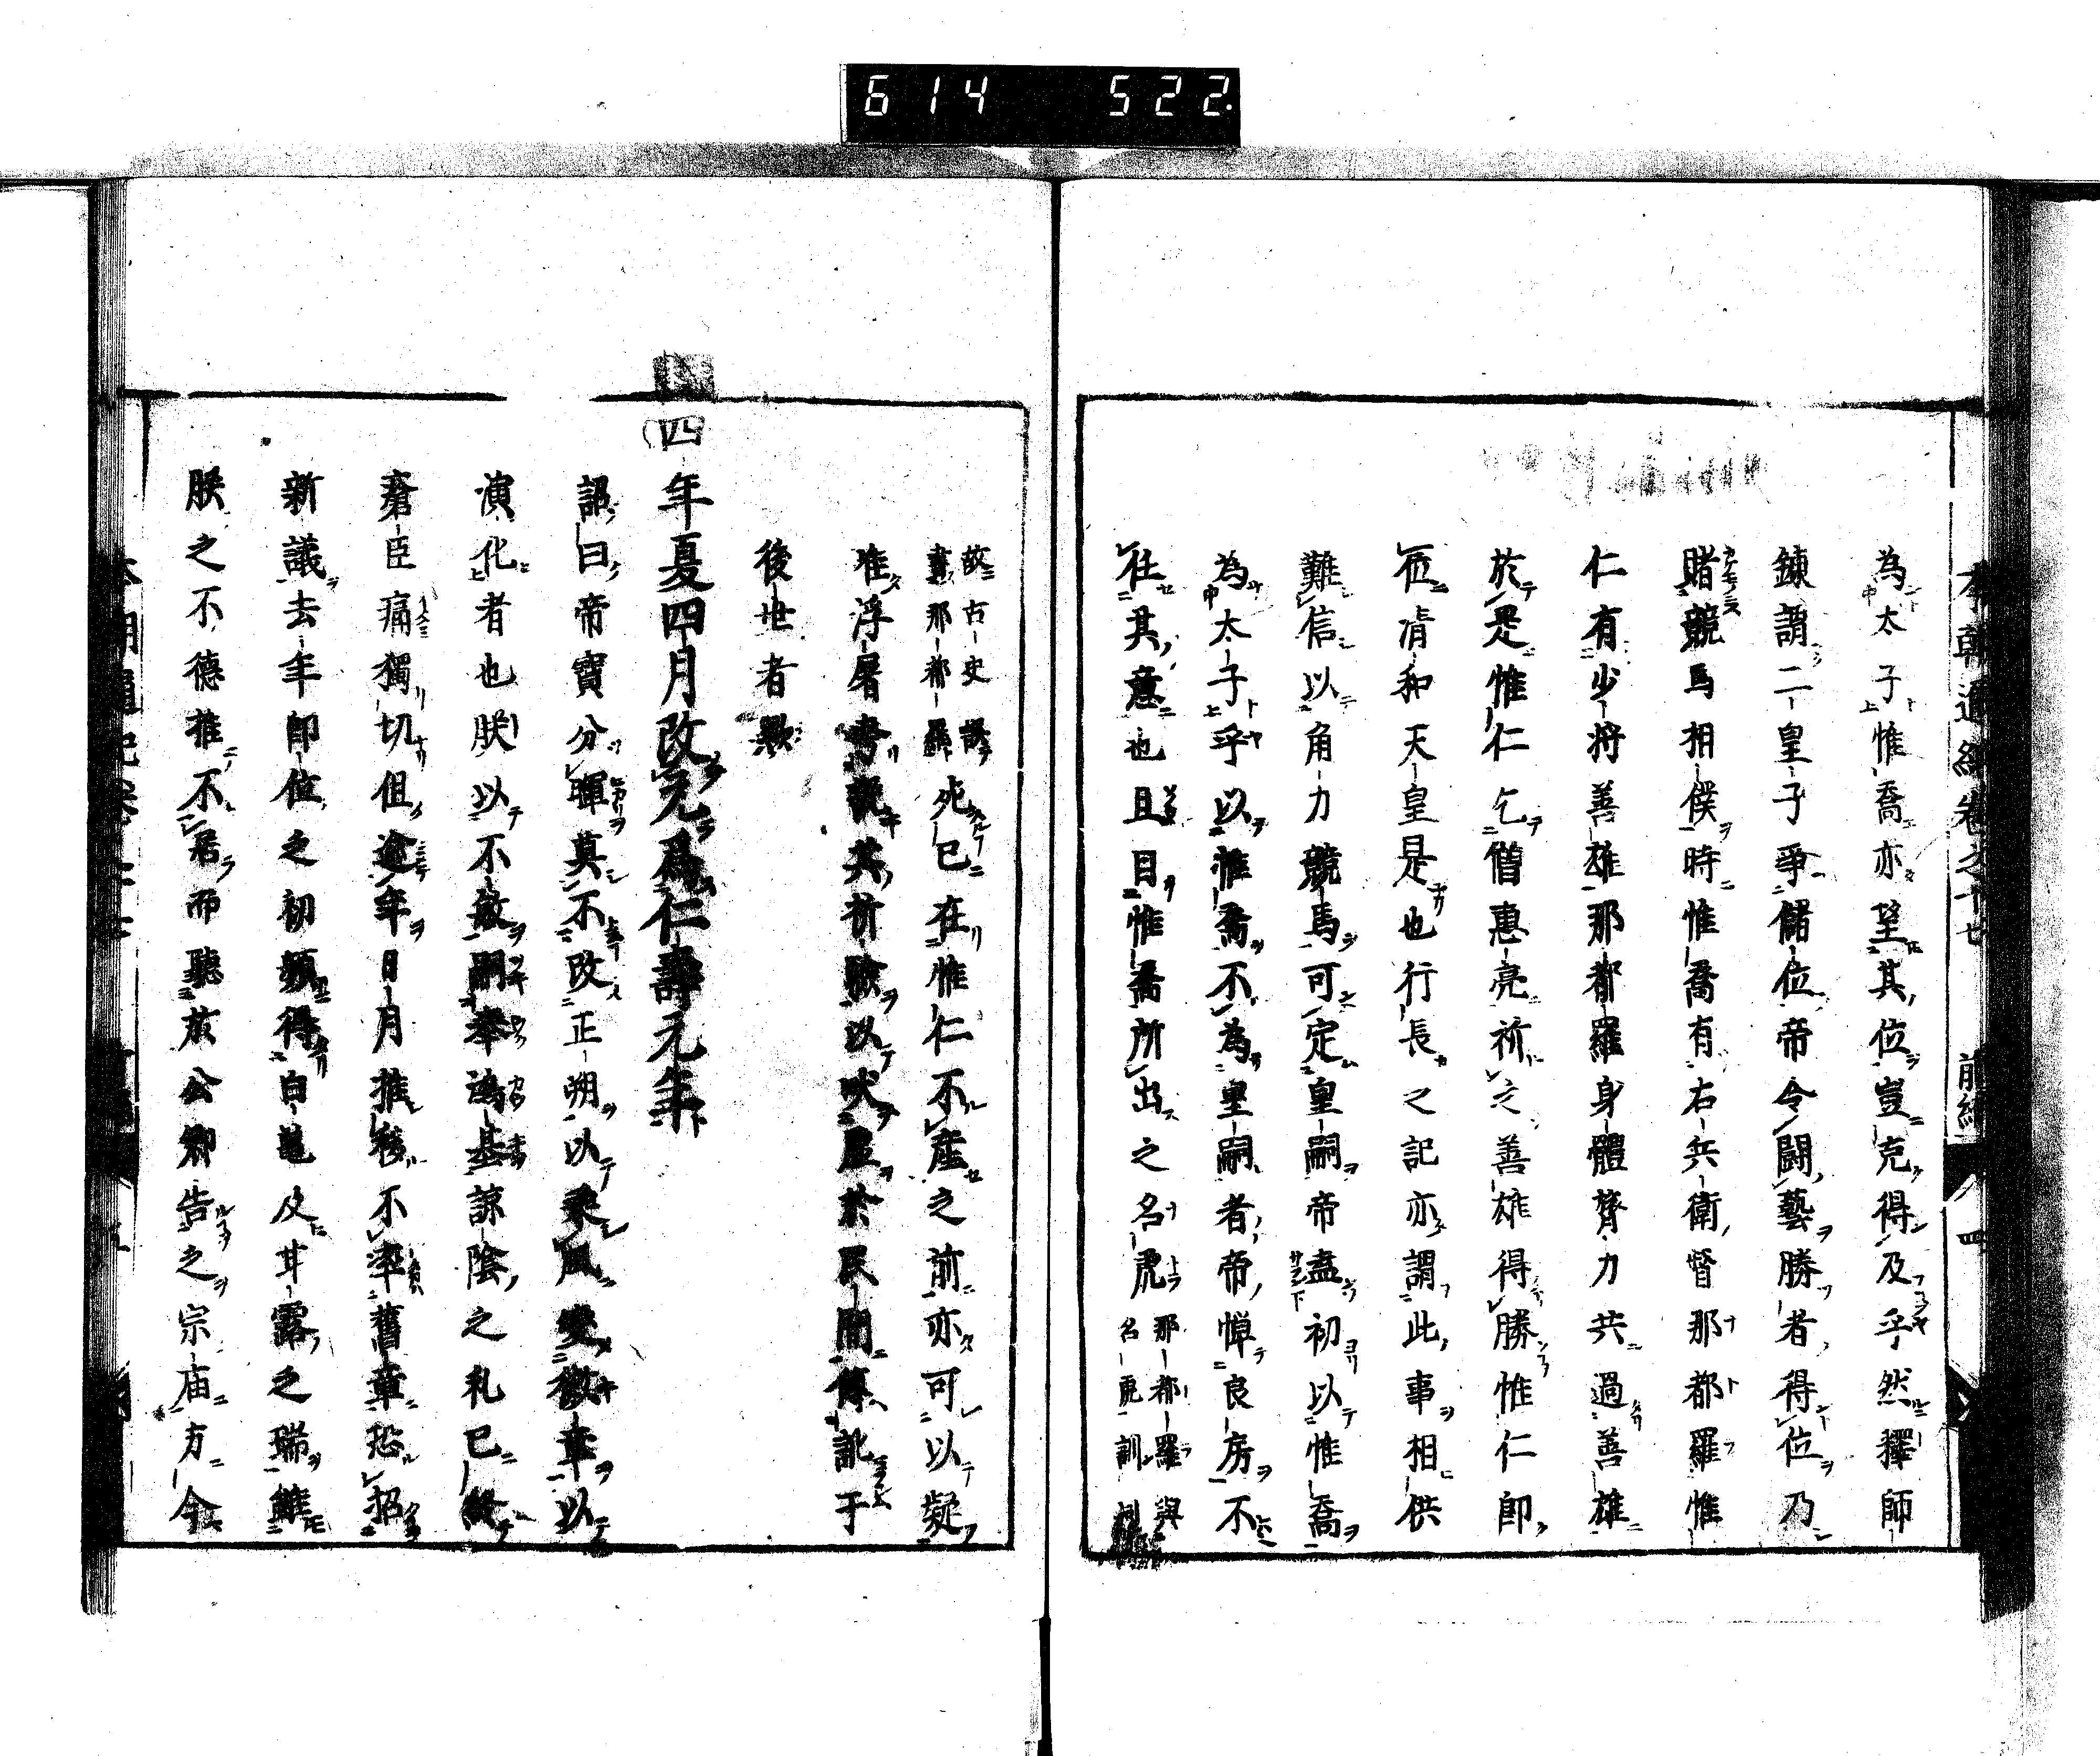 614 522
本朝通紀卷之十七 前編 四
為太子惟喬亦望其位豈克得及乎然擇師
錬謂二皇子爭儲位帝令闘藝勝者得位乃
賭競馬相僕時惟喬有右兵衛督那都羅惟
仁有少将善雄那都羅身體膂力共過善雄
於是惟仁乞僧惠亮祈之善雄得勝惟仁即
位清和天皇是也行長之記亦謂此事相供
難信以角力競馬可定皇嗣帝盍初以惟喬
為太子乎以惟喬不為皇嗣者帝憚良房不
任其意也且目惟喬所出之名虎
那都羅與
名虎訓
故古史誘
書那都羅
死已在惟仁不産之前亦可以疑
唯浮屠考説其祈驗以吠屋於民間傳訛于
後世者歟
四年夏四月改元為仁壽元年
詔曰帝寶分暉莫不改正朔以乘風變徽章以
演化者也朕以不敏嗣奉鴻基諒陰之礼已終
瘡巨痛獨切但逾年日月推移不率舊章恐招
新議去年即位之初頻得白亀及甘露之瑞雖
朕之不德推不居而聽於公卿告之宗庙方今